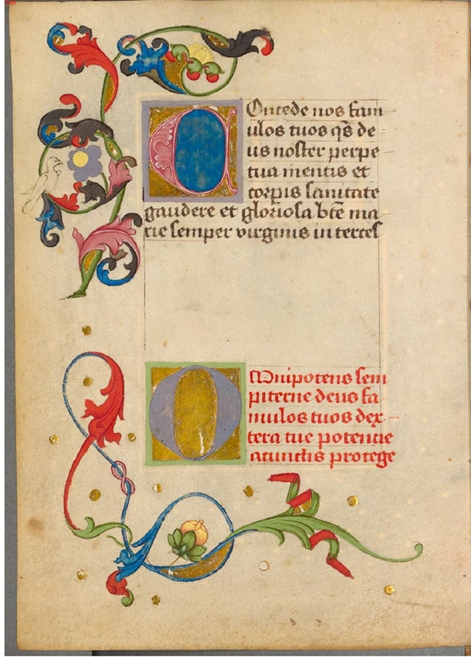 Concede nos fam
ulos tuos qs de
us noster perpe
tua mentis et
corpis sanitate
gaudere et gloriosa bte ma
rie semper virginis interces
Omnipotens sem
piterne deus fa
mulos tuos dex
tera tue potentie
a cunctis protege